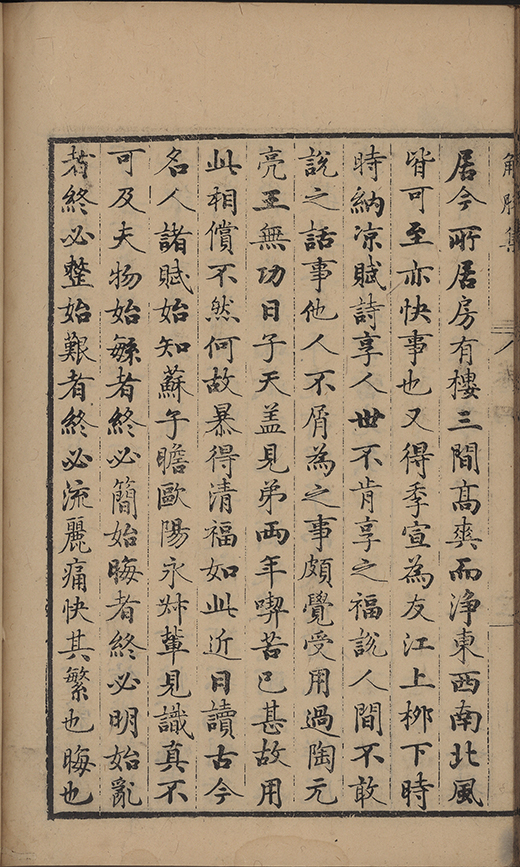 解脫集
居今所居房有樓三間高爽而淨東西南北風
皆可至亦快事也又得季宣為友江上栁下時
時納凉賦詩享人世不肯享之福說人間不敢
說之話事他人不屑為之事頗覺受用過陶元
亮王無功日子天盖見弟兩年喫苦已甚故用
此相償不然何故暴得清福如此近日讀古今
名人諸賦始知蘇子瞻歐陽永叔輩見識真不
可及夫物始緐者終必簡始晦者終必明始亂
者終必整始艱者終必流麗痛快其繁也晦也